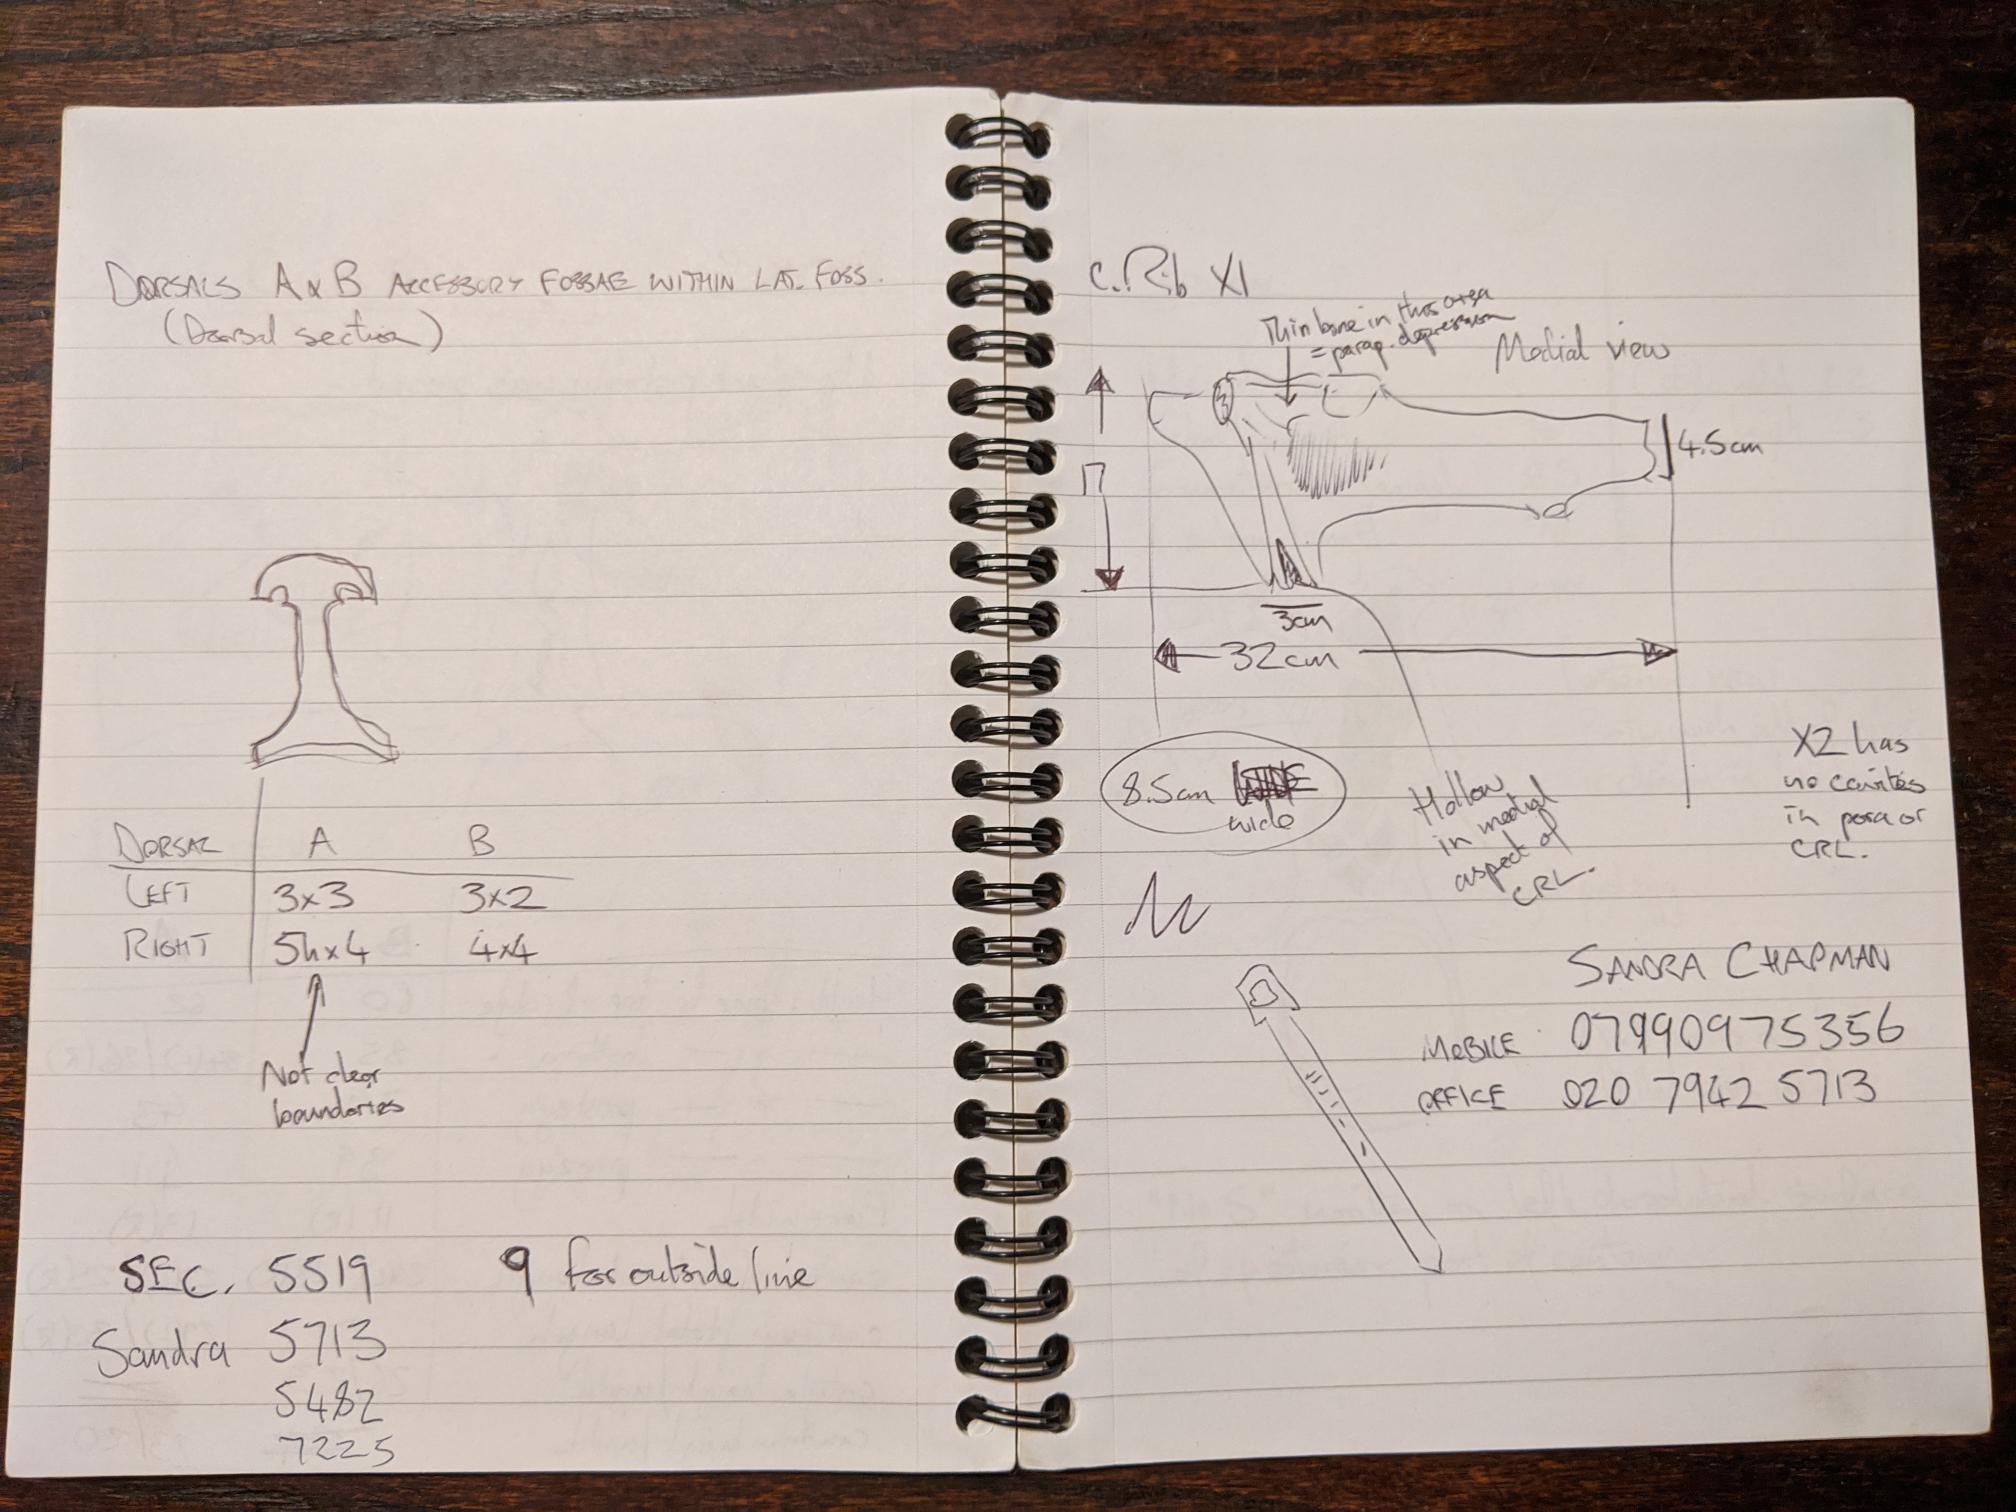 DORSALS A & B ACCESSORY FOSSAE WITHIN LAT. FOSS.
(Dorsal section)
DORSAL A B
LEFT 3x3 3x2
RIGHT 5hx4 4x4
Not clear
boundaries
SEC. 5519 9 for outside line
Sandra 5713
5482
7225
C. Rib X1
Thin bone in this area
= parap. depression
Medial view
4.5cm
17
3cm
32cm
8.5cm
wide
Hollow
in medial
aspect of
CRL.
X2 has
no cavities
in para or
CRL.
SANDRA CHAPMAN
MOBILE 07990975356
OFFICE 020 7942 5713